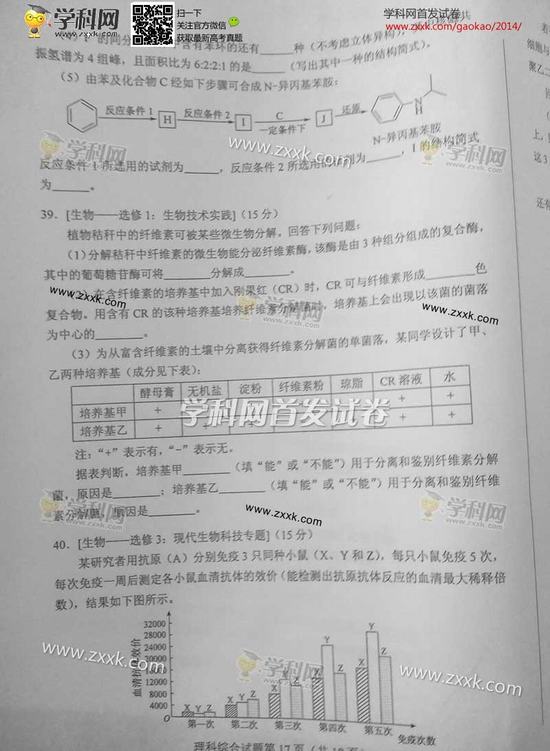 学科网
www.zxxk.com
扫一扫
关注官方微信
获取最新高考真题
学科网首发试卷
www.zxxk.com/gaokao/2014/
含有苯环的还有______种（不考虑立体异构），
振氢谱为4组峰，且面积比为6:2:2:1的是______（写出其中一种的结构简式）。
（5）由苯及化合物C经如下步骤可合成N-异丙基苯胺：
反应条件1 H 反应条件2 I C 一定条件下 J 还原
N-异丙基苯胺
反应条件1所选用的试剂为______，反应条件2所选用的试剂为______，I的结构简式
为______。
学科网
www.zxxk.com
39．[生物——选修1：生物技术实践]（15分）
植物秸秆中的纤维素可被某些微生物分解。回答下列问题：
（1）分解秸秆中纤维素的微生物能分泌纤维素酶，该酶是由3种组分组成的复合酶，
其中的葡萄糖苷酶可将______分解成______。
（2）在含纤维素的培养基中加入刚果红（CR）时，CR可与纤维素形成______色
复合物。用含有CR的该种培养基培养纤维素分解菌时，培养基上会出现以该菌的菌落
为中心的______。
（3）为从富含纤维素的土壤中分离获得纤维素分解菌的单菌落，某同学设计了甲、
乙两种培养基（成分见下表）：
酵母膏 无机盐 淀粉 纤维素粉 琼脂 CR溶液 水
培养基甲 + + +
培养基乙 + + +
学科网首发试卷
注：“+”表示有，“-”表示无。
据表判断，培养基甲______（填“能”或“不能”）用于分离和鉴别纤维素分解
菌，原因是______；培养基乙______（填“能”或“不能”）用于分离和鉴别纤维
素分解菌，原因是______。
40．[生物——选修3：现代生物科技专题]（15分）
某研究者用抗原（A）分别免疫3只同种小鼠（X、Y和Z），每只小鼠免疫5次，
每次免疫一周后测定各小鼠血清抗体的效价（能检测出抗原抗体反应的血清最大稀释倍
数），结果如下图所示。
血清抗体效价
32000
28000
24000
20000
16000
12000
8000
4000
X Y Z X Y Z X Y Z X Y Z X Y Z
第一次 第二次 第三次 第四次 第五次 免疫次数
理科综合试题第17页